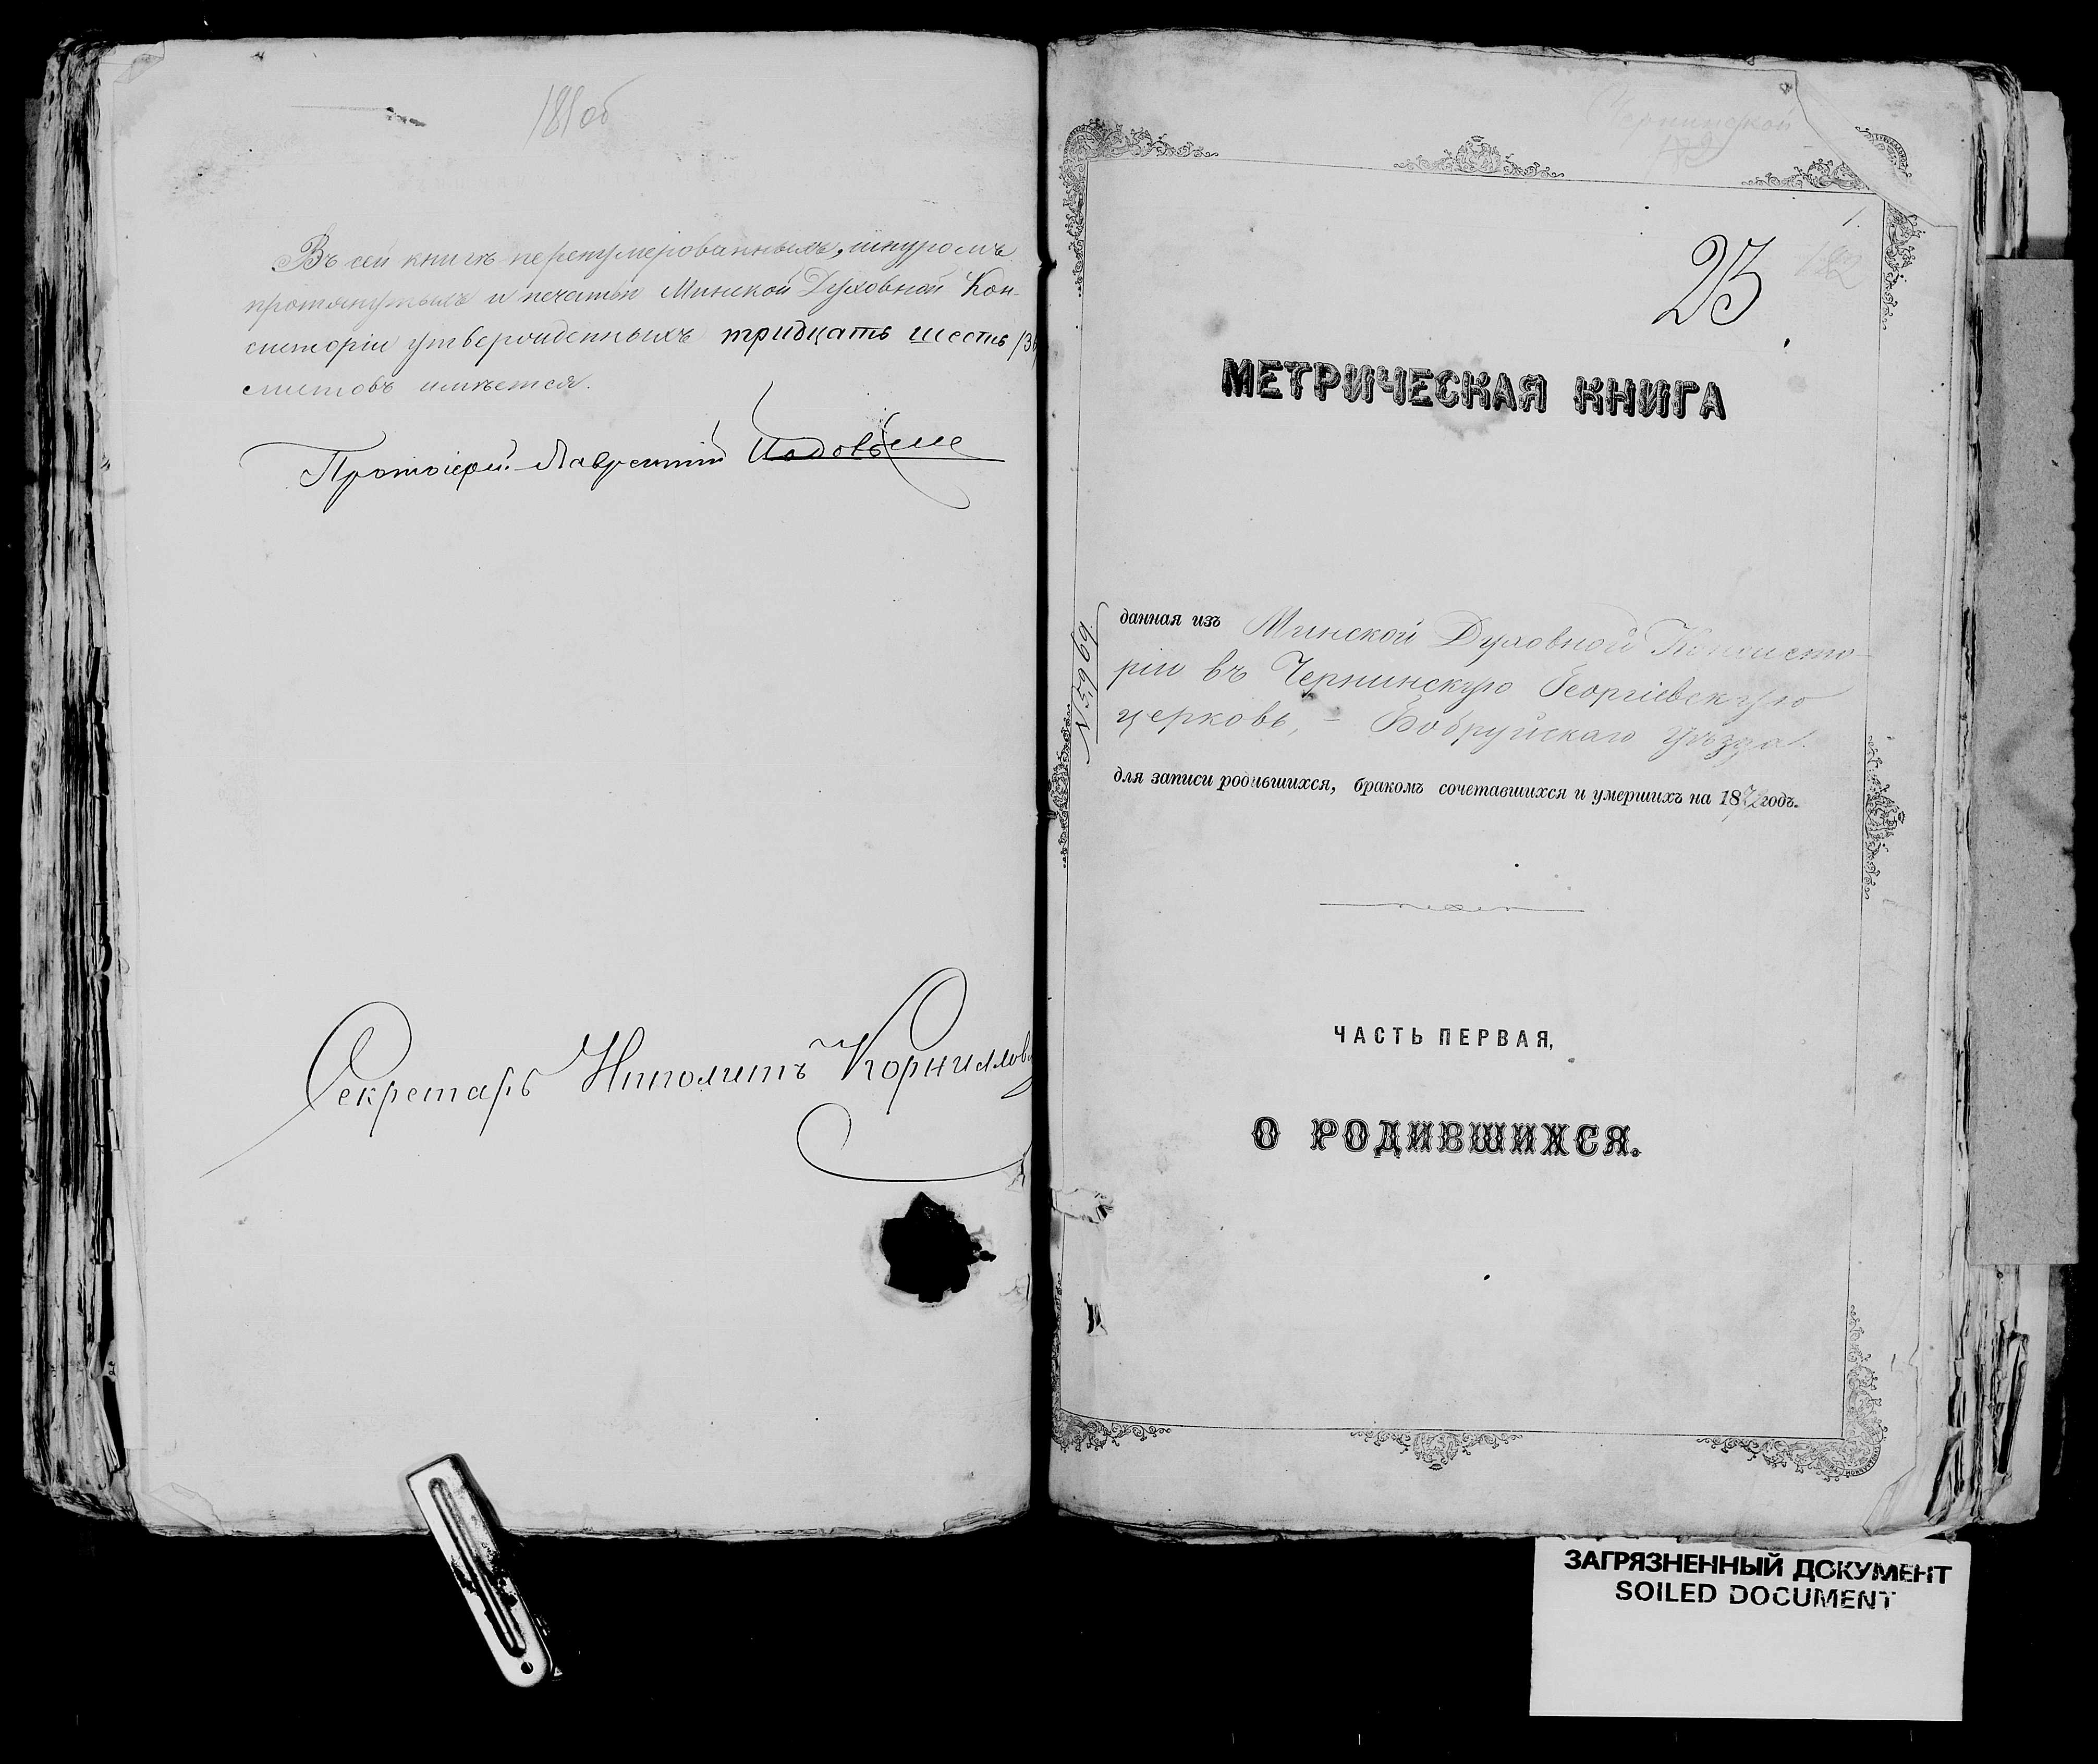 181 об
Въ сей книгѣ перенумерованныхъ, шнуромъ
протянутыхъ и печатью Минской Духовной Кон-
систоріи утвержденныхъ тридцать шесть /36/
листовъ имѣется.
Протоіерей Лаврентій
Секретарь Иполитъ Корниловъ
Чернинской
1.
25
182
МЕТРИЧЕСКАЯ КНИГА
№ 5969
данная изъ Минской Духовной Консисто-
ріи въ Чернинскую Георгіевскую
церковь, - Бобруйскаго уѣзда.
для записи родившихся, бракомъ сочетавшихся и умершихъ на 1872 годъ.
ЧАСТЬ ПЕРВАЯ,
О РОДИВШИХСЯ.
ЗАГРЯЗНЕННЫЙ ДОКУМЕНТ
SOILED DOCUMENT